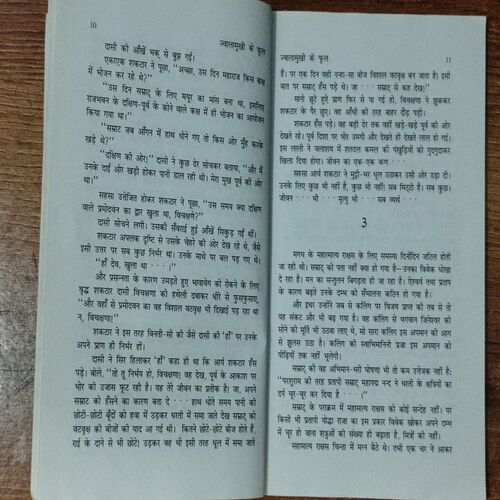 10
ज्वालामुखी के फूल
दासी की आँखें भक् से बुझ गईं।
एकाएक शकटार ने पूछा, “अच्छा, उस दिन महाराज किस कक्ष
में भोजन कर रहे थे?”
“उस दिन सम्राट् के लिए मयूर का मांस बना था, इसलिए
राजभवन के दक्षिण-पूर्व के कोने वाले कक्ष में ही भोजन का आयोजन
किया गया था।”
“सम्राट जब आँगन में हाथ धोने गए तो किस ओर मुँह करके
खड़े थे?”
“दक्षिण की ओर!” दासी ने कुछ देर सोचकर बताया, “और मैं
उनके दाईं ओर खड़ी होकर पानी डाल रही थी। मेरा मुख पूर्व की ओर
था।”
सहसा उत्तेजित होकर शकटार ने पूछा, “उस समय क्या दक्षिण
वाले प्रमोदवन का द्वार खुला था, विचक्षणे?”
दासी सोचने लगी। उसकी सँवराई हुई आँखें सिकुड़ गई थीं।
शकटार अपलक दृष्टि से उसके चेहरे की ओर देख रहे थे, जैसे
इसी उत्तर पर सब कुछ निर्भर हो। उनके माथे पर बल पड़ गए थे।
“हाँ देव, खुला था ····।”
और प्रसन्नता के कारण उमड़ते हुए भावावेग को रोकने के लिए
वृद्ध शकटार दासी विचक्षणा की हथेली दबाकर धीरे से फुसफुसाए,
“और वहाँ से प्रमोदवन का वह विशाल वटवृक्ष भी दिखाई पड़ रहा था
न, विचक्षणा?”
शकटार ने इस तरह विनती-सी की जैसे दासी की ‘हाँ’ पर उनके
अपने प्राण ही निर्भर हों।
दासी ने सिर हिलाकर ‘हाँ’ कहा ही था कि आर्य शकटार हँस
पड़े। बोले, “तो तू निर्भय हो, विचक्षणा! वह देख, पूर्व के आकाश पर
भोर की उजास फूट रही है। यह तेरे जीवन का प्रतीक है। जा, अपने
सम्राट को हँसने का कारण बता दे ···· हाथ धोते समय पानी की
छोटी-छोटी बूँदों को हवा में उड़कर धरती में समा जाते देख सम्राट् को
वटवृक्ष की बीजों की याद आ गई थी। कितने छोटे-छोटे बीज होते हैं,
राई के दाने से भी छोटे! उड़कर वह भी इसी तरह धूल में समा जाते
ज्वालामुखी के फूल
11
हैं। पर एक दिन वही नन्हा-सा बीज विशाल वटवृक्ष बन जाता है। इसी
बात पर सम्राट् हँस पड़े थे। जा ···· सम्राट् से कह देख।”
मानो छूटे हुए प्राण फिर से पा गई हो, विचक्षणा ने झुककर
शकटार के पैर छुए। वह आँधी की तरह बाहर दौड़ पड़ी।
शकटार हँस पड़े। वह बड़ी देर तक वहाँ खड़े-खड़े पूर्व की ओर
देखते रहे। पूर्व दिशा पर भोर उमगी और देखते ही देखते लाल हो गई।
इस लाली ने जलाशय में शतदल कमल की पंखुड़ियों को गुदगुदाकर
खिला दिया होगा। जीवन का एक-एक कण ····
सहसा आर्य शकटार ने मुट्ठी-भर धूल उठाकर उसी ओर उड़ा दी।
उनके लिए कुछ भी नहीं है, कुछ भी नहीं! सब मिट्टी है। सब कुछ।
जीवन ··· भी ··· मृत्यु भी ··· सब व्यर्थ ····
3
मगध के महामात्य राक्षस के लिए समस्या दिनोंदिन जटिल होती
जा रही थी। सम्राट् को पता नहीं क्या हो गया है–उनका विवेक धोखा
दे रहा है। मन का सन्तुलन बिगड़ता ही जा रहा है। ऐश्वर्य तथा प्रताप
के कारण बढ़ते उनके दम्भ को सँभालना कठिन हो गया है।
और इधर उन्होंने जब से कलिंग पर विजय प्राप्त की तब से तो
यह संकट और भी बढ़ गया है। वह कलिंग से भगवान जिनेश्वर की
सोने की मूर्ति भी उठवा लाए थे, सो सारा कलिंग इस अपमान की आग
से झुलस उठा है। कलिंग की स्वाभिमानिनी प्रजा इस अपमान को
पीढ़ियों तक नहीं भूलेगी।
सम्राट् की वह अभिमान-भरी घोषणा भी तो कम उत्तेजक नहीं है:
“परशुराम की तरह प्रतापी सम्राट् महापद्म नन्द ने धरती के क्षत्रियों का
दर्प चूर-चूर कर दिया है ····।”
सम्राट् के पराक्रम में महामात्य राक्षस को कोई सन्देह नहीं। पर
किसी भी प्रतापी योद्धा राजा का इस प्रकार विवेक खोकर अपने दम्भ
में चूर हो जाना शत्रुओं की संख्या ही बढ़ाता है, मित्रों की नहीं।
महामात्य राक्षस चिन्ता में मग्न बैठे थे। तभी एक चर ने आकर